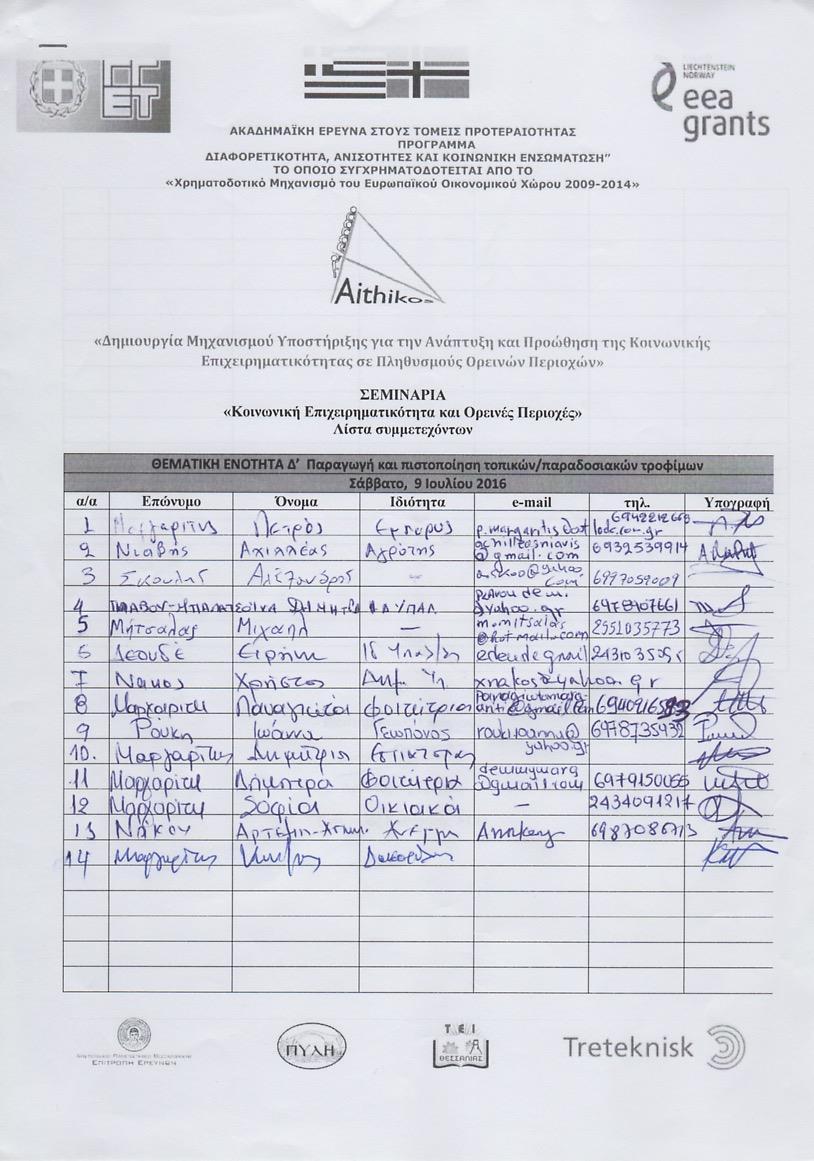 ΓΓΕΤ
LIECHTENSTEIN
NORWAY
eea
grants
ΑΚΑΔΗΜΑΪΚΗ ΕΡΕΥΝΑ ΣΤΟΥΣ ΤΟΜΕΙΣ ΠΡΟΤΕΡΑΙΟΤΗΤΑΣ
ΠΡΟΓΡΑΜΜΑ
ΔΙΑΦΟΡΕΤΙΚΟΤΗΤΑ, ΑΝΙΣΟΤΗΤΕΣ ΚΑΙ ΚΟΙΝΩΝΙΚΗ ΕΝΣΩΜΑΤΩΣΗ”
ΤΟ ΟΠΟΙΟ ΣΥΓΧΡΗΜΑΤΟΔΟΤΕΙΤΑΙ ΑΠΟ ΤΟ
«Χρηματοδοτικό Μηχανισμό του Ευρωπαϊκού Οικονομικού Χώρου 2009-2014»
Aithikos
«Δημιουργία Μηχανισμού Υποστήριξης για την Ανάπτυξη και Προώθηση της Κοινωνικής
Επιχειρηματικότητας σε Πληθυσμούς Ορεινών Περιοχών»
ΣΕΜΙΝΑΡΙΑ
«Κοινωνική Επιχειρηματικότητα και Ορεινές Περιοχές»
Λίστα συμμετεχόντων
ΘΕΜΑΤΙΚΗ ΕΝΟΤΗΤΑ Δ’ Παραγωγή και πιστοποίηση τοπικών/παραδοσιακών τροφίμων
Σάββατο, 9 Ιουλίου 2016
α/α Επώνυμο Όνομα Ιδιότητα e-mail τηλ. Υπογραφή
1 Μαργαρίτης Πέτρος Έμπορος
2 Νιαβής Αχιλλέας Αγρότης @gmail.com 6932539914
3 Αλέξανδρος 6997059009
4 yahoo.gr 6978907661
5 Μήτσαλας Μιχαήλ — m.mitsalas @hotmail.com 2551035773
6 Δεουδέ Ειρήνη
7 Νάκος Χρήστος xnakos@yahoo.gr
8 Μαργαρίτη Παναγιώτα φοιτήτρια
9 Ρούκη Ιωάννα Γεωπόνος roukiioanna@ yahoo.gr 6978735932
10. Μαργαρίτης
11 Μαργαρίτη Δήμητρα Φοιτήτρια @gmail.com 6979150066
12 Μαργαρίτη Σοφία Οικιακά — 2434091217
13 Νάκου 6987086713
14 Μαργαρίτης
ΕΠΙΤΡΟΠΗ ΕΡΕΥΝΩΝ
ΠΥΛΗ
ΤΕΙ
ΘΕΣΣΑΛΙΑΣ
Treteknisk